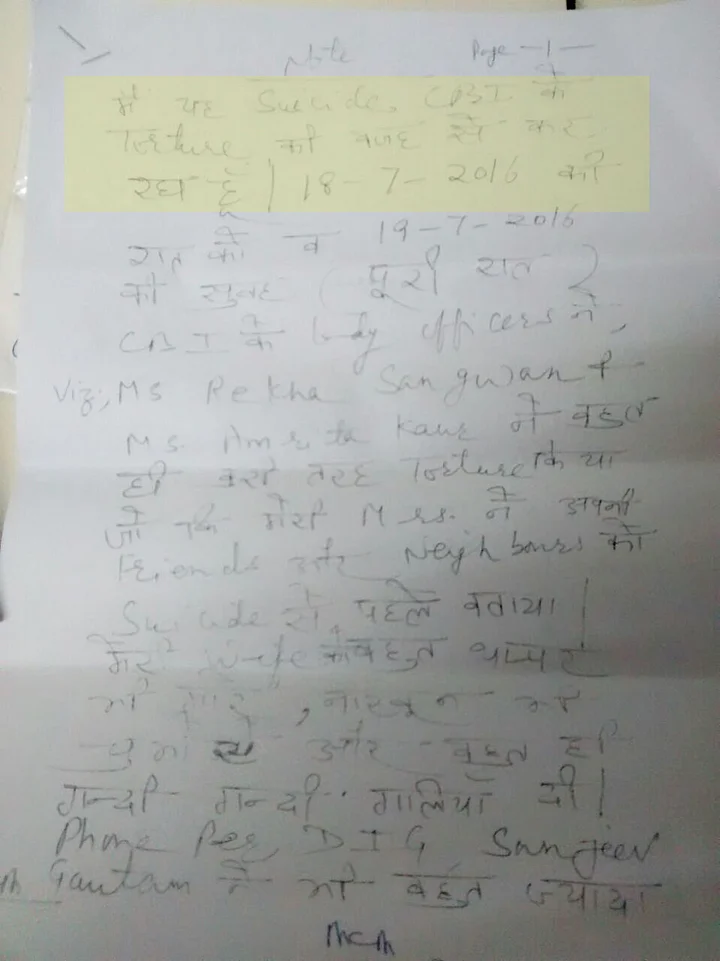 Note Page - 1 -
मैं यह Suicide, CBI के
Torture की वजह से कर
रहा हूँ | 18-7-2016 की
रात को व 19-7-2016
की सुबह (पूरी रात)
CBI के lady officers ने,
Viz, Ms Rekha Sangwan &
Ms. Amrita Kaur ने बहुत
ही बुरी तरह Torture किया
जो कि मेरी Mrs. ने अपनी
Friends और Neighbours को
Suicide से पहले बताया |
मेरी Wife को बहुत थप्पड़
भी मारे, नाखून भी
चुभाये और बहुत ही
गन्दी गन्दी गालियाँ दी |
Phone Per, DIG, Sanjeev
Gautam ने भी बहुत ज्याया